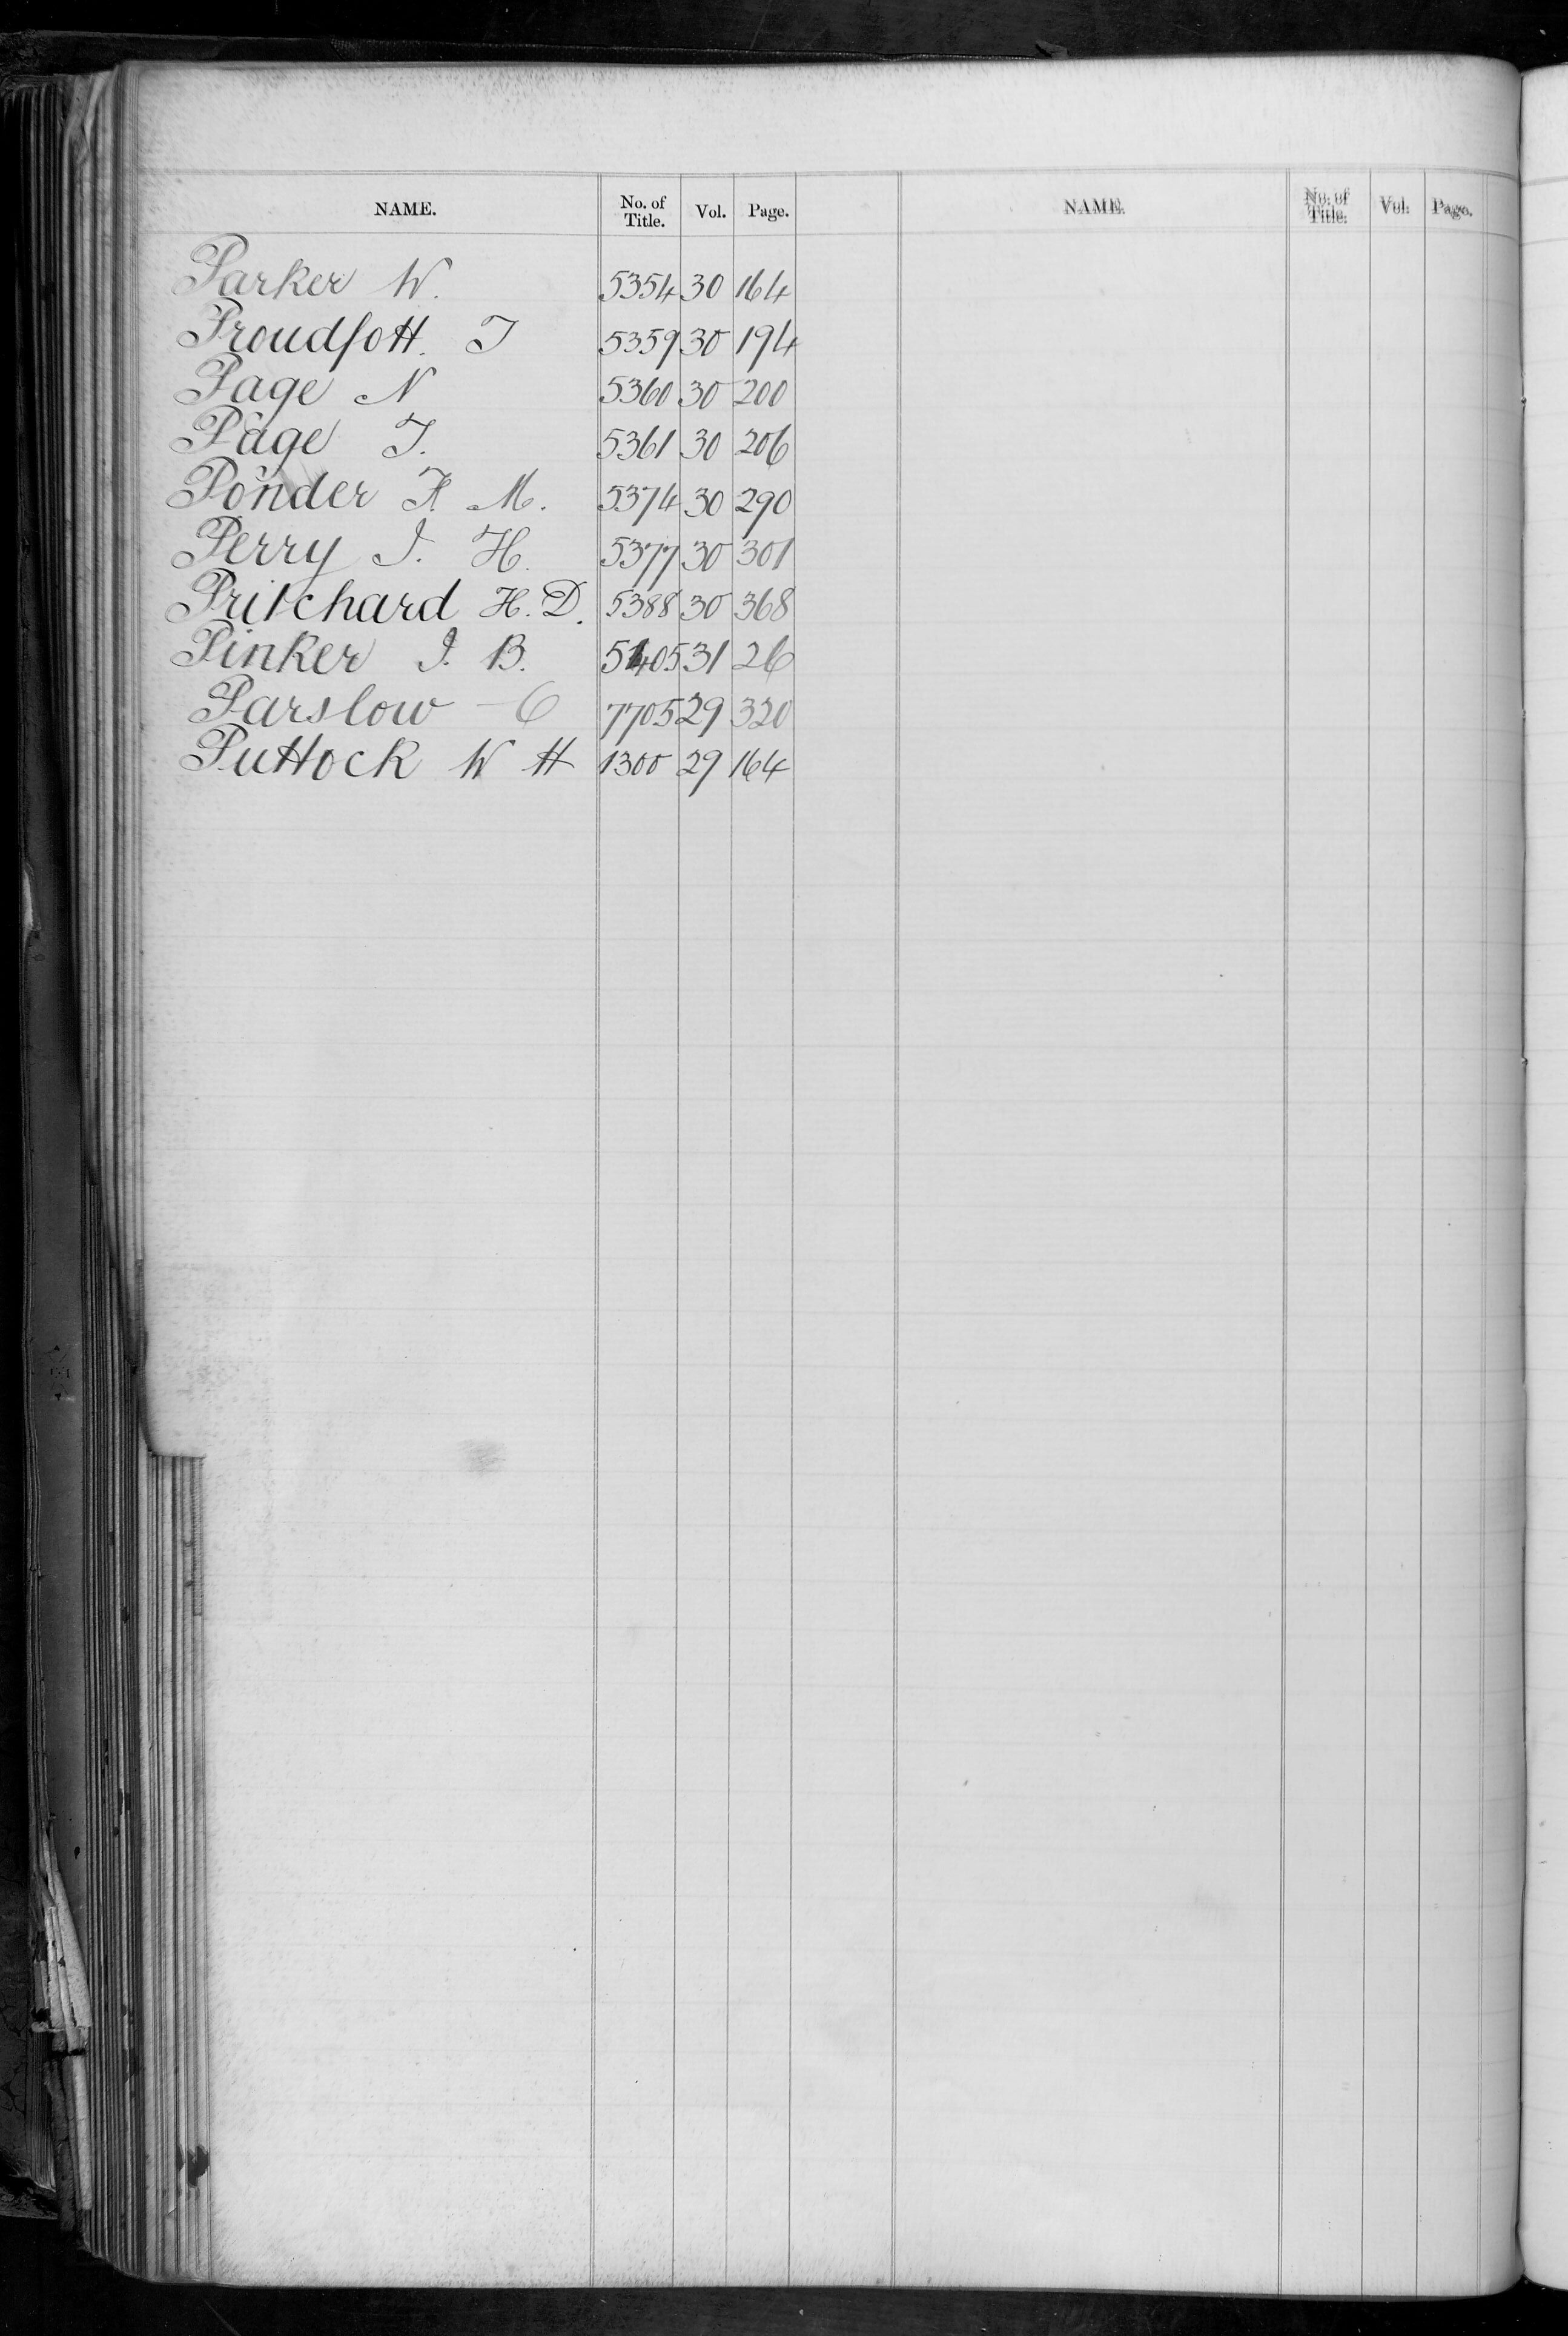 NAME. No. of Title. Vol. Page. NAME. No. of Title. Vol. Page.
Parker W. 5354 30 164
Proudfott. T 5359 30 194
Page N 5360 30 200
Page T. 5361 30 206
Ponder F. M. 5374 30 290
Perry J. H. 5377 30 301
Pritchard H. D. 5388 30 368
Pinker J. B. 5405 31 26
Parslow C 7705 29 320
Puttock W H 1300 29 164